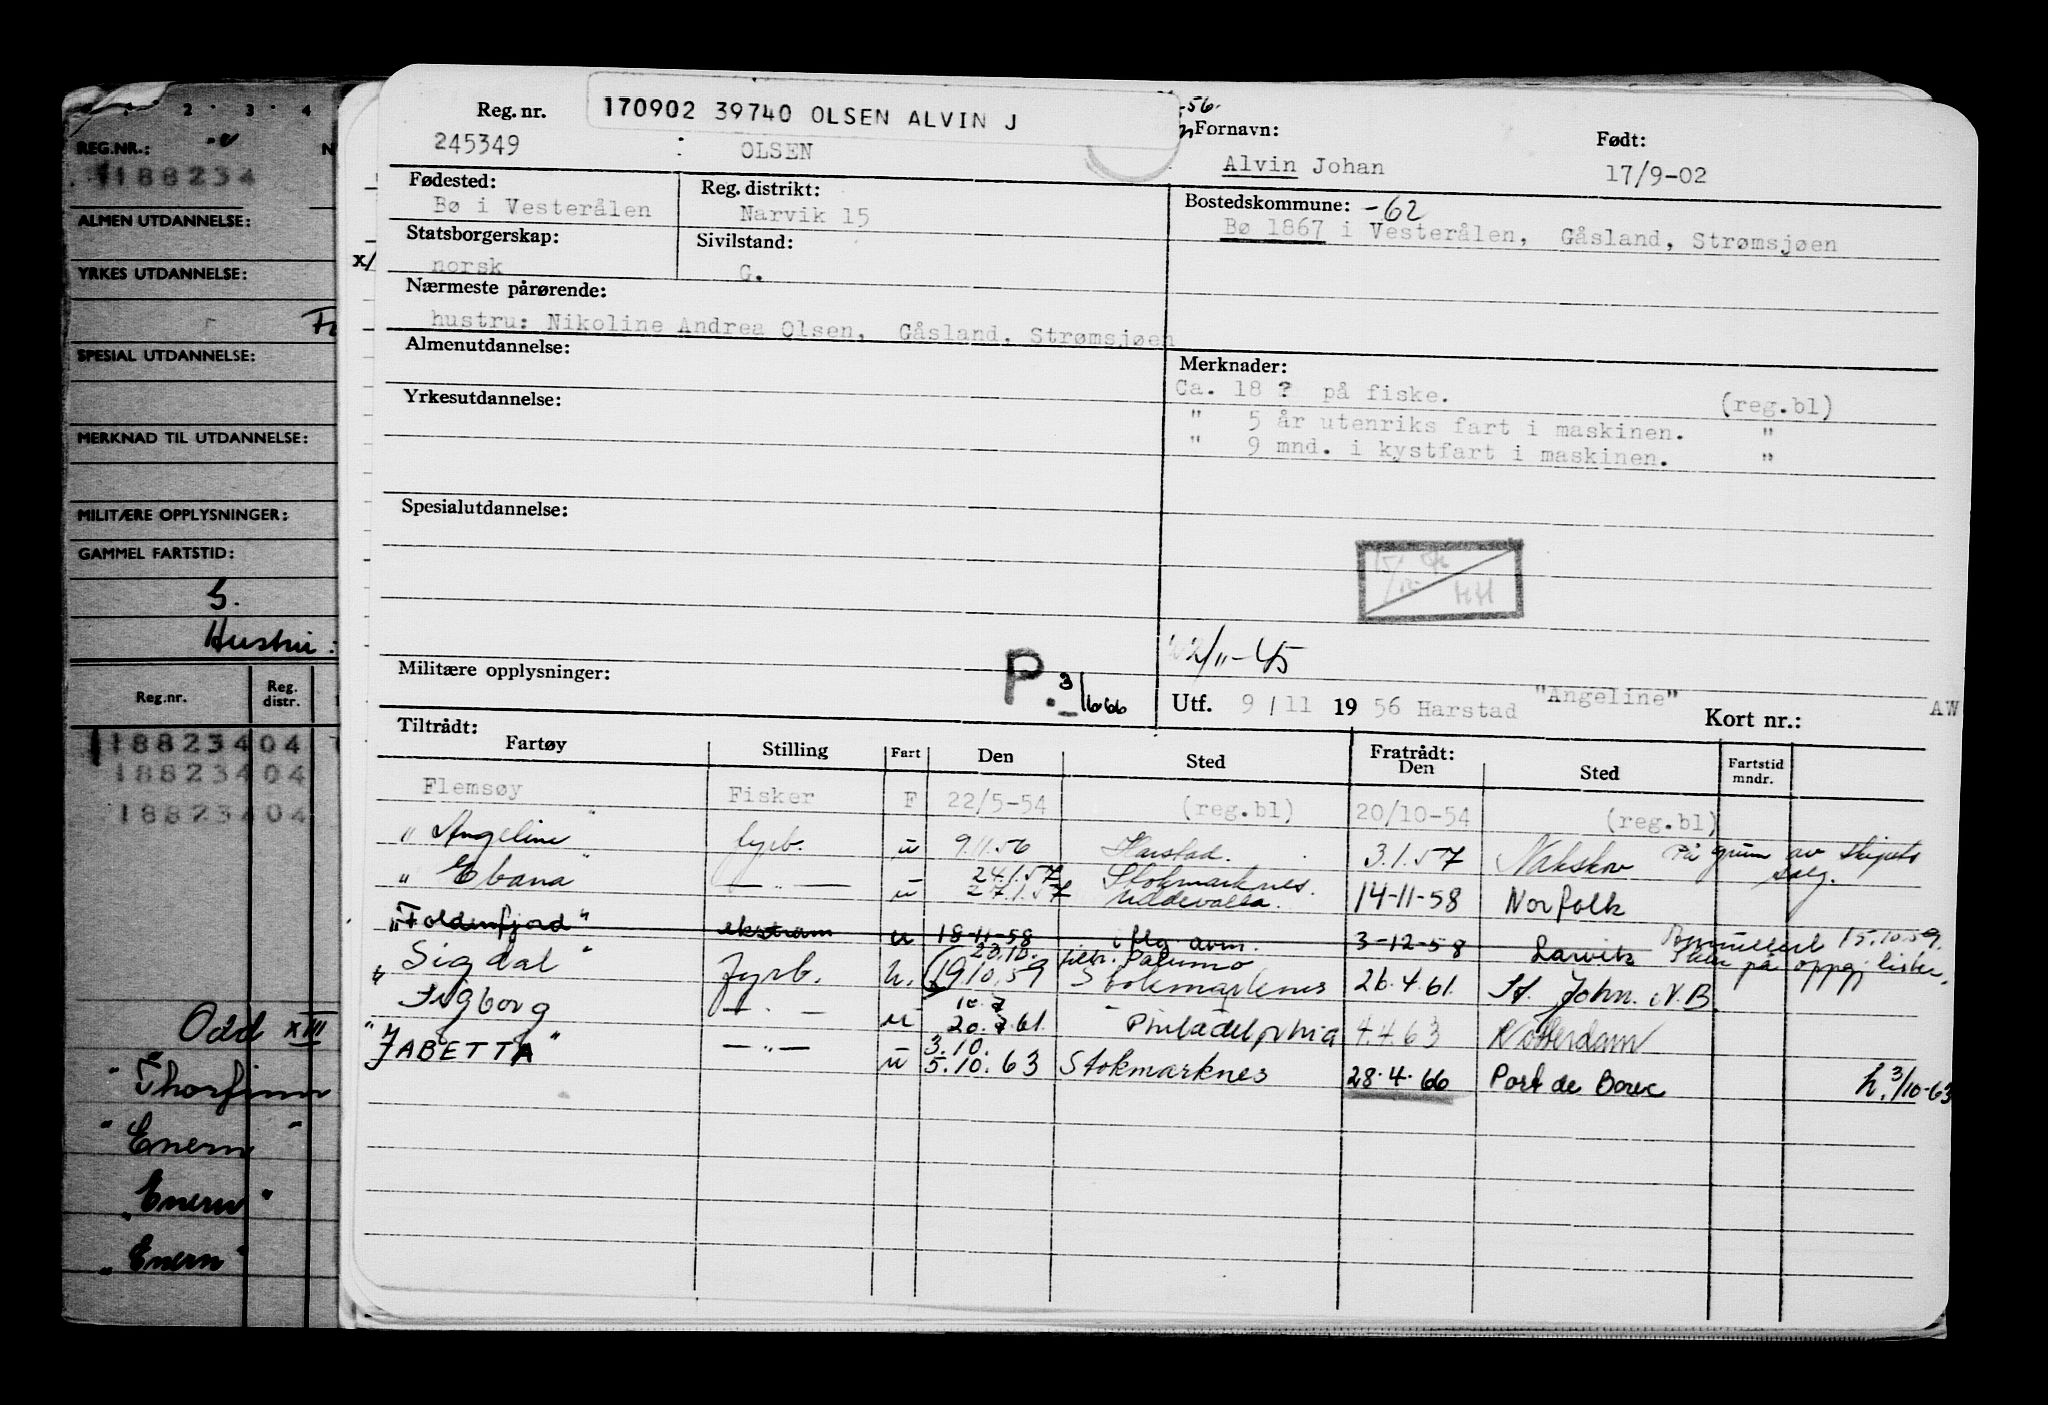 1 · 2 · 3 · 4
REG.NR.:
188234
ALMEN UTDANNELSE:
YRKES UTDANNELSE:
SPESIAL UTDANNELSE:
MERKNAD TIL UTDANNELSE:
MILITÆRE OPPLYSNINGER:
GAMMEL FARTSTID:
Hustru:
Reg.nr. Reg. distr.
188234 04
188234 04
188234 04
Odd XIII
"Thorfinn
"Enern"
"Enern"
"Enern"
170902 39740 OLSEN ALVIN J
-56.
Reg. nr. Fornavn: Født:
245349 : OLSEN Alvin Johan 17/9-02
Fødested: Reg. distrikt: Bostedskommune: -62
Bø i Vesterålen Narvik 15 Bø 1867 i Vesterålen, Gåsland, Strømsjøen
Statsborgerskap: Sivilstand:
x/ norsk G.
Nærmeste pårørende:
hustru: Nikoline Andrea Olsen, Gåsland, Strømsjøen
Almenutdannelse:
Merknader:
Ca. 18 ? på fiske. (reg.bl)
" 5 år utenriks fart i maskinen. "
" 9 mnd. i kystfart i maskinen. "
Yrkesutdannelse:
Spesialutdannelse:
HH
22/11-45
Militære opplysninger: P. 3/6-66
Utf. 9/11 1956 Harstad "Angeline" Kort nr.: AW
Tiltrådt: Fratrådt:
Fartøy Stilling Fart Den Sted Den Sted Fartstid mndr.
Flemsøy Fisker F 22/5-54 (reg.bl) 20/10-54 (reg.bl)
"Angeline" fyrb. u 9.11.56 Harstad. 3.1.57 Nakskov På grunn av skipets salg.
24.1.57 Stokmarknes.
"Ebana" — " — u 27.1.57 Uddevalla. 14-11-58 Norfolk
"Foldenfjord" ekstram u 18-11-58 i flg avm. 3-12-58 Larvik 15.10.59.
20.10. Palermo på oppgj lister.
"Sigdal" Fyrb. u. (19.10.59 Stokmarknes 26.4.61. St. John. N.B.
"Sigborg — " — u 20.7.61. Philadelphia 4.4.63 Rotterdam
3.10.
"JABETTA" — " — u 5.10.63 Stokmarknes 28.4.66 Port de Bouc h. 3/10-63